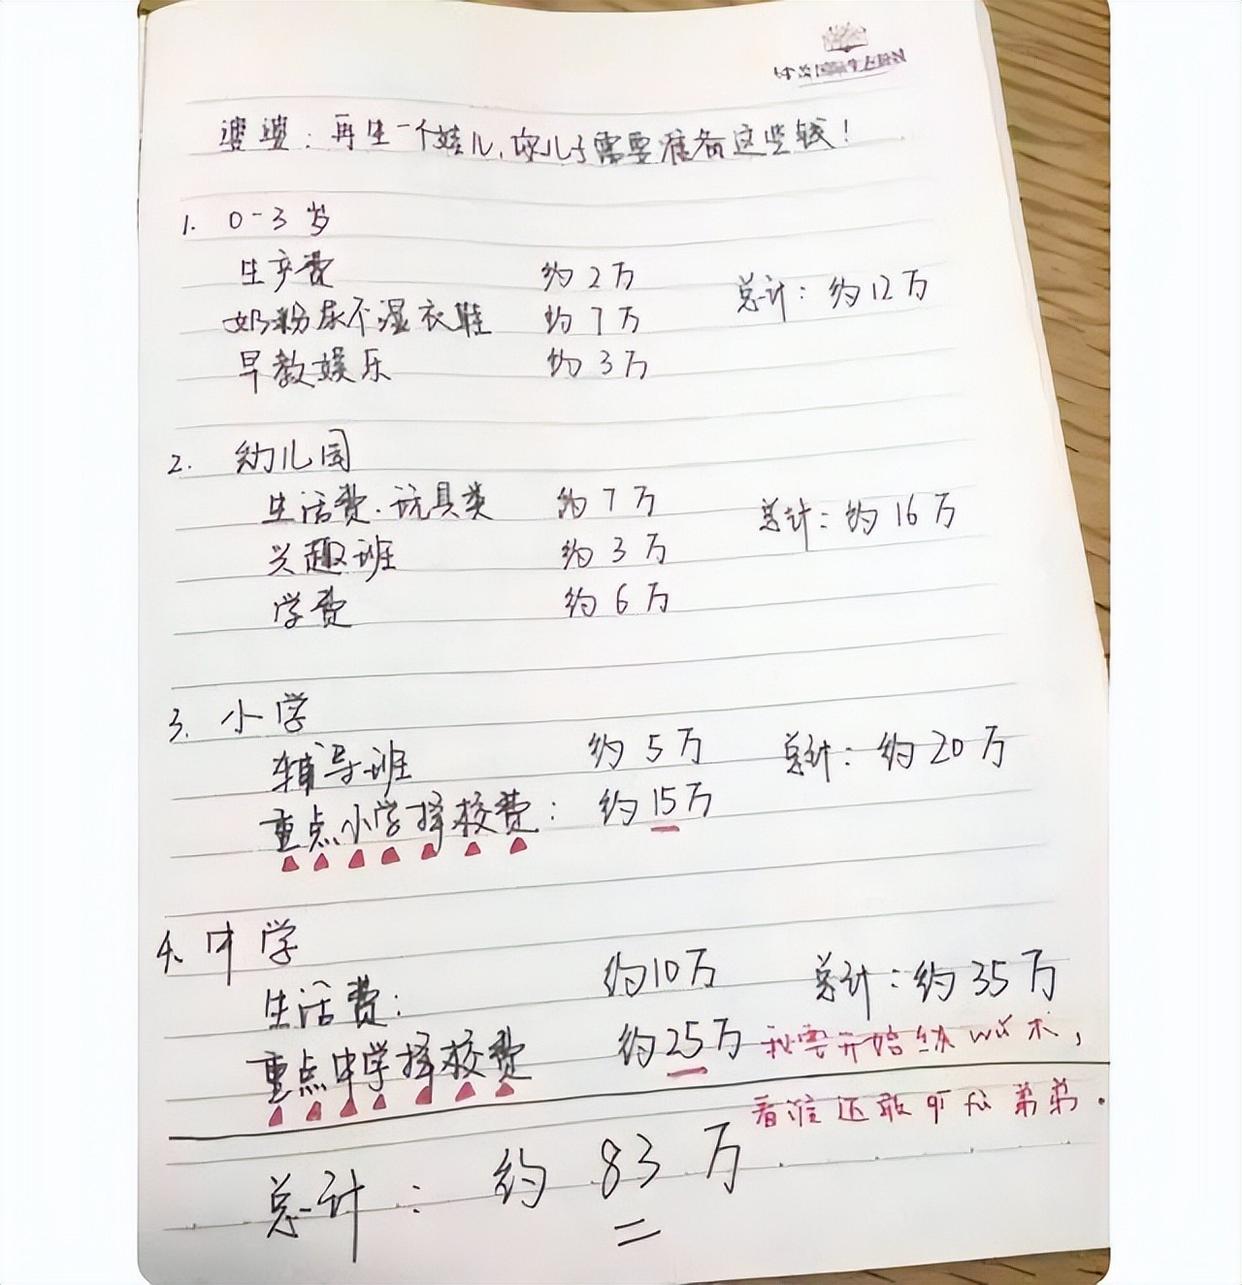 婆婆：再生一个娃儿，你儿子需要准备这些钱！
1. 0-3岁
生产费 约2万 总计：约12万
奶粉尿不湿衣鞋 约7万
早教娱乐 约3万
2. 幼儿园
生活费.玩具类 约7万 总计：约16万
兴趣班 约3万
学费 约6万
3. 小学
辅导班 约5万 总计：约20万
重点小学择校费： 约15万
4. 中学
生活费： 约10万 总计：约35万
重点中学择校费 约25万
我要开始练wu术，
看谁还敢弟弟.
总计： 约83万